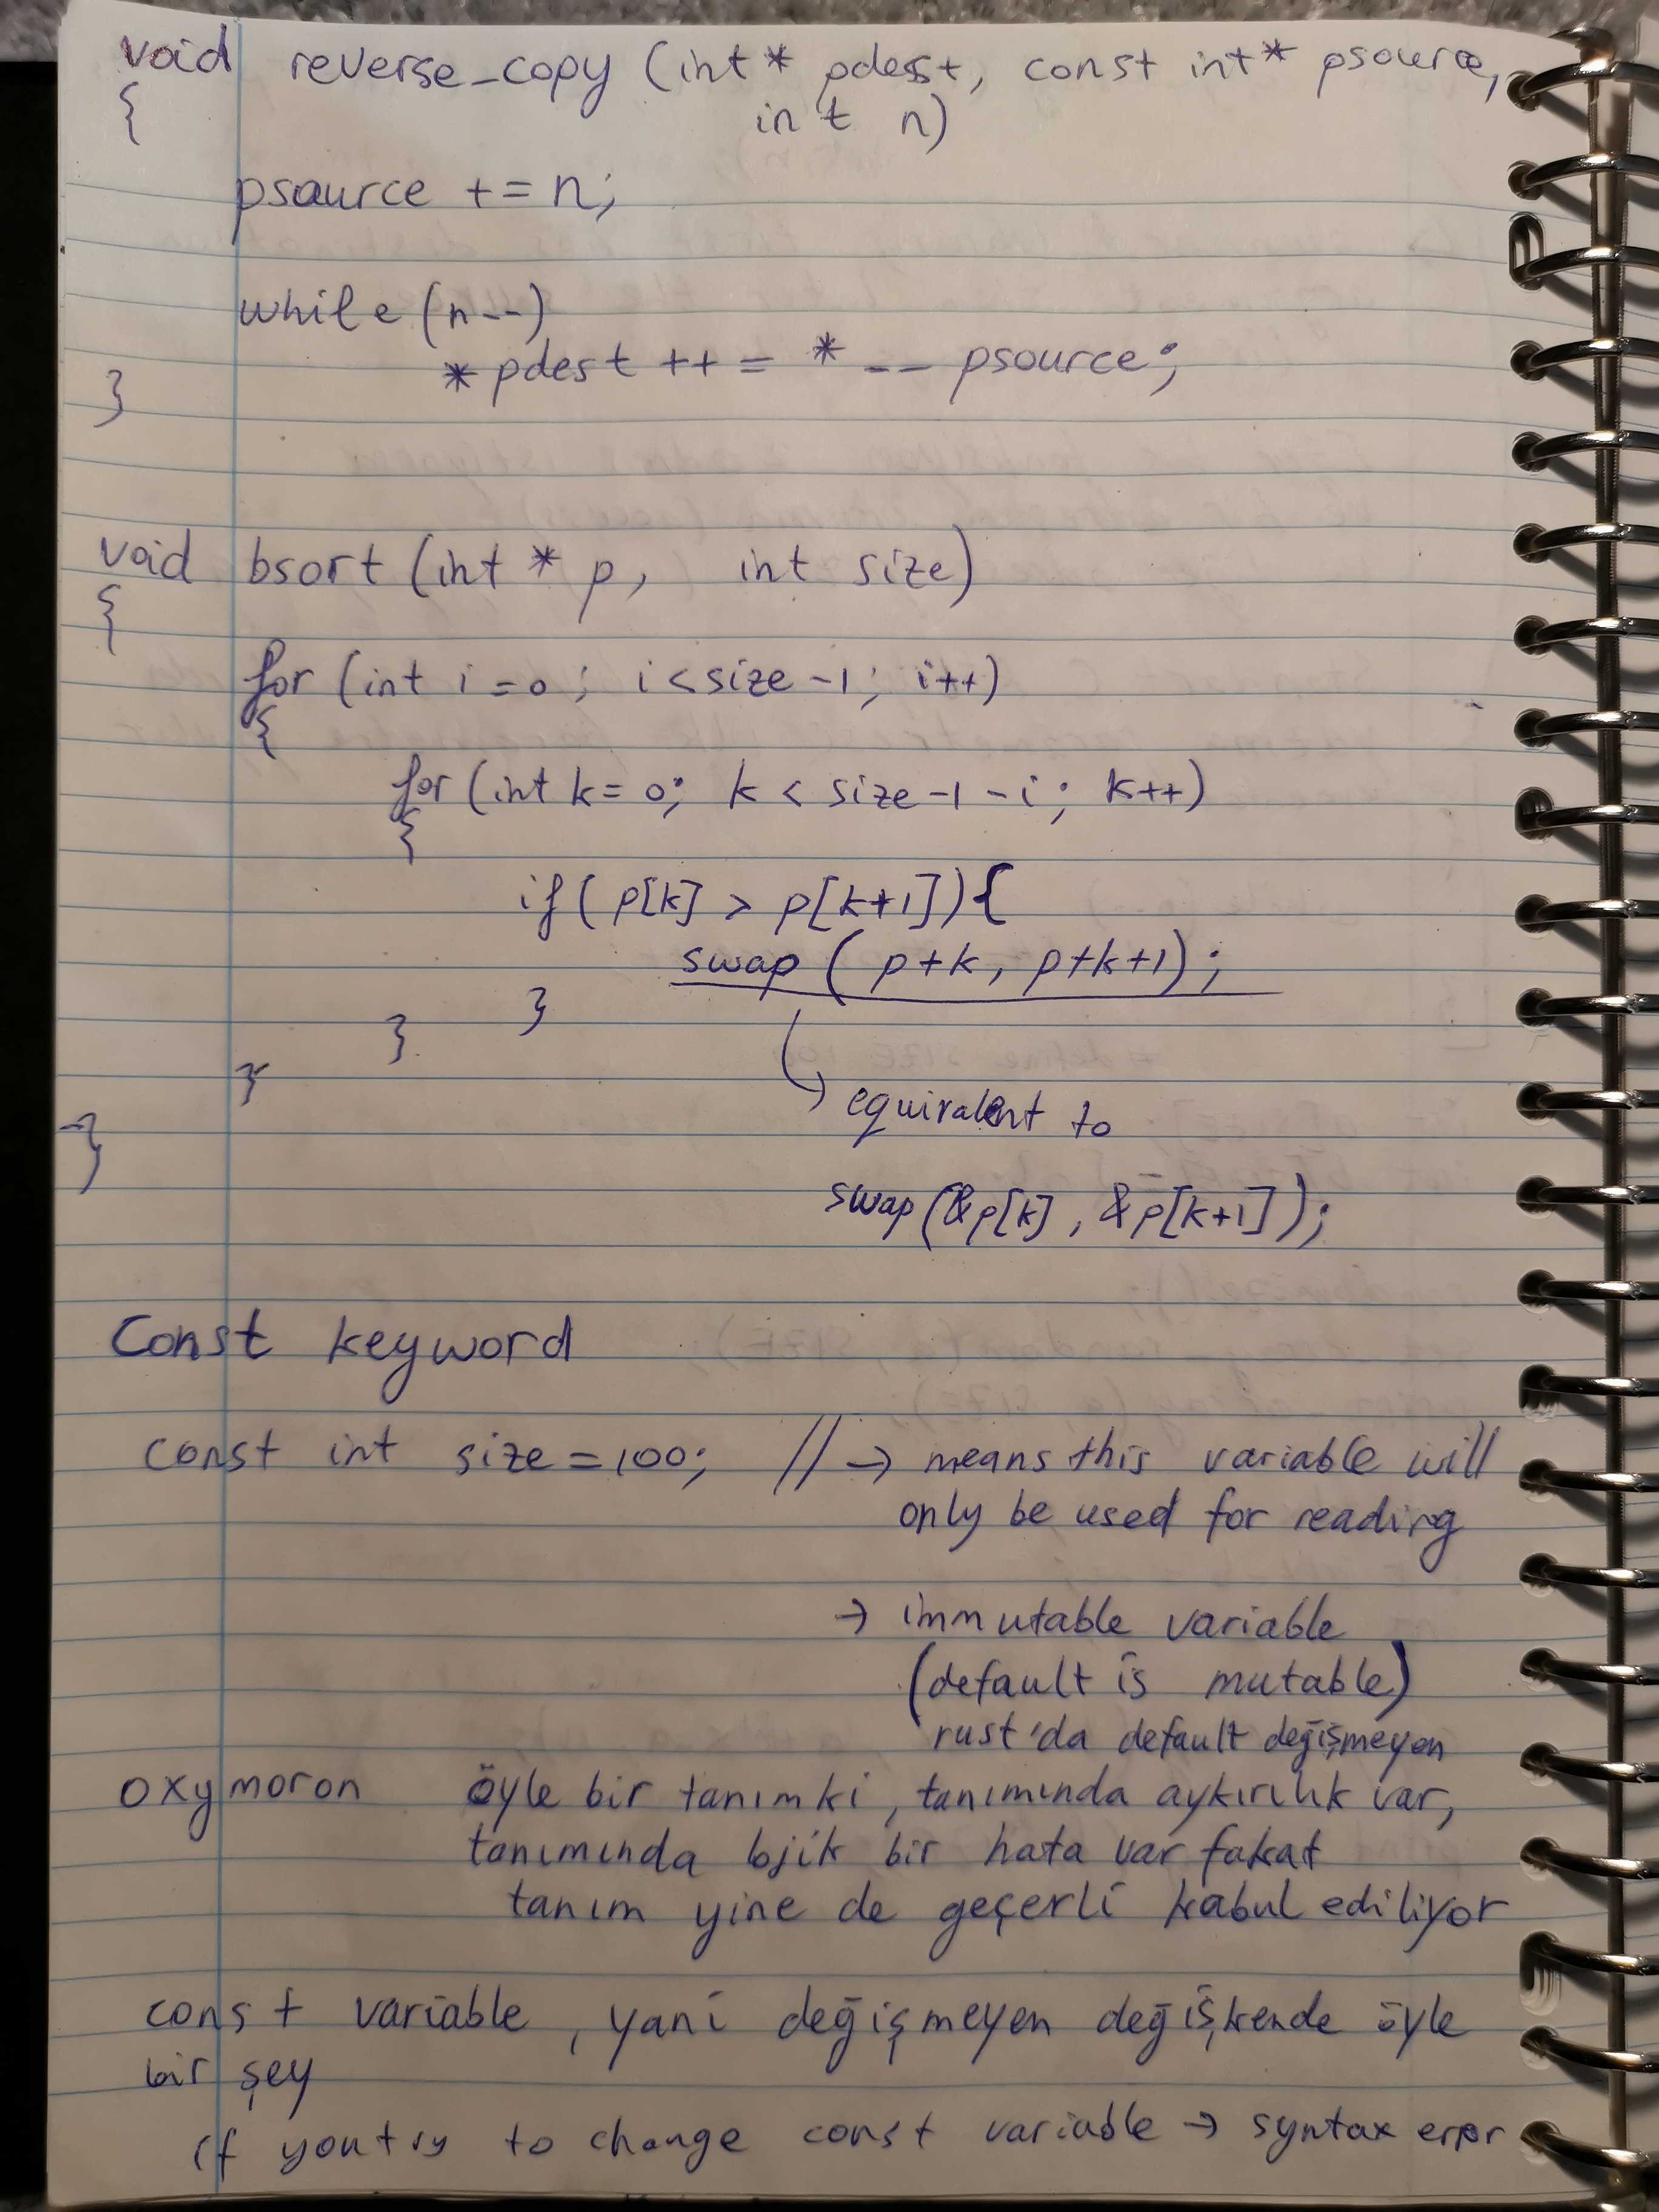 void reverse_copy (int* pdest, const int* psource,
int n)
{
psource += n;
while (n--)
*pdest ++ = * -- psource;
}
void bsort (int * p, int size)
{
for (int i=0; i<size-1; i++)
{
for (int k=0; k < size-1-i; k++)
{
if( p[k] > p[k+1]){
swap ( p+k, p+k+1);
}
}
}
}
equivalent to
swap(&p[k], &p[k+1]);
Const keyword
const int size=100; // → means this variable will
only be used for reading
→ immutable variable
(default is mutable)
rust'da default değişmeyen
oxymoron öyle bir tanımki, tanımında aykırılık var,
tanımında lojik bir hata var fakat
tanım yine de geçerli kabul ediliyor
const variable, yani değişmeyen değişkende öyle
bir şey
if you try to change const variable → syntax error